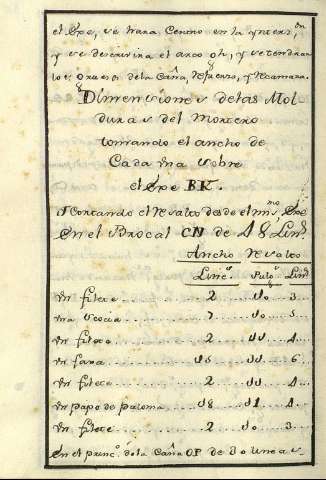 el Exe, se hara Centro en la ynters.on
y se descrivira el arco oh, y se tendran
los Gruesos de la Caña, Refuerzo, y Recamara.
Dimensiones de las Mol
duras del Mortero
tomando el ancho de
Cada una sobre
el Exe BK.
Y Contando el Resalto desde el mis.mo Exe
En el Brocal CN de 48 Lin.s
Ancho Resalto
Linc.s Pulg.s Lin.s
Un filete 2 3
Una Escocia 7 5
Un filete 2 4
Un faxa 6
Un filete 2 4
Un papo de paloma 4
Un filete 2 3
En el princ.o de la Caña OP de 30 lineas